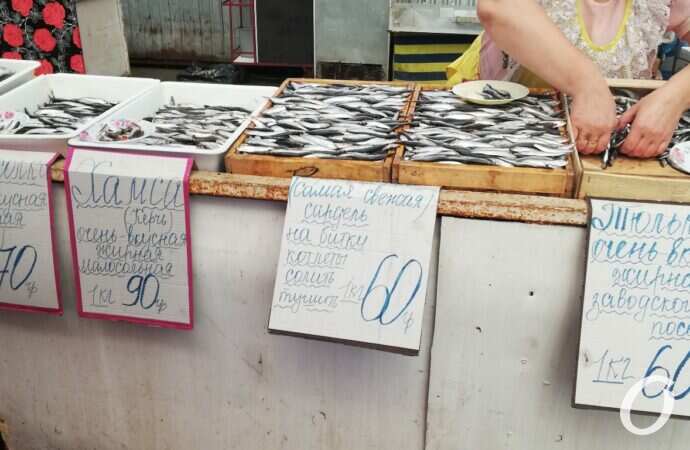 ная
70
Хамса
(Керчь)
очень-вкусная
жирная
малосольная
1кг 90гр
(Самая свежая)
сардель
на битки
котлеты
солить
тушить 1кг 60гр
Тюльк
очень вк
жирна
заводско
пос
1кг 60